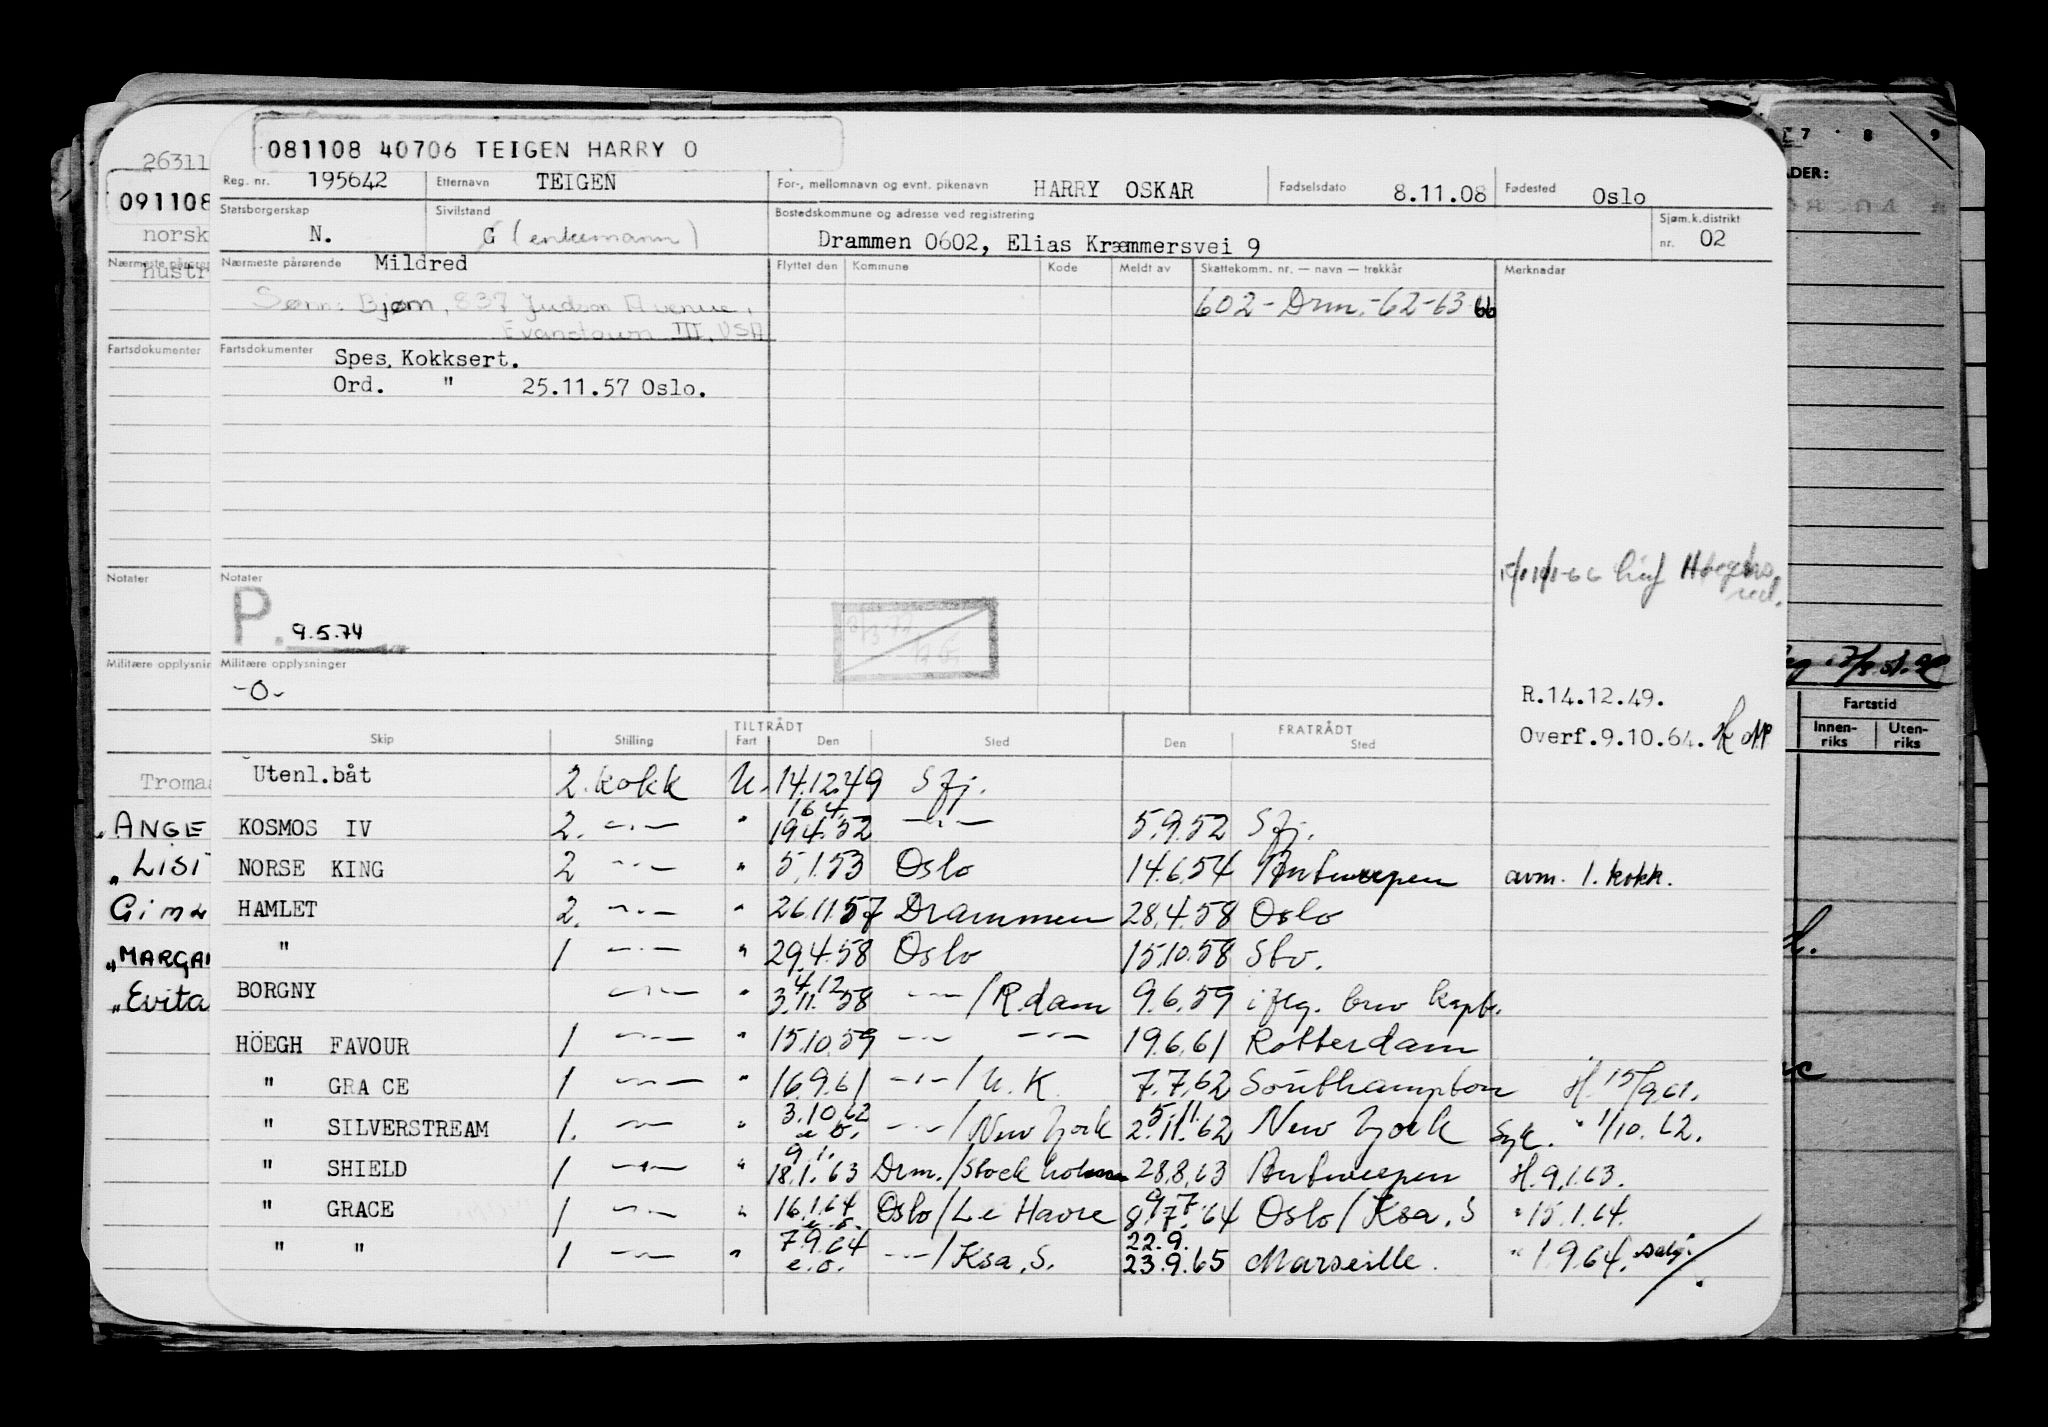 081108 40706 TEIGEN HARRY O
Reg. nr. 195642 Etternavn TEIGEN For-, mellomnavn og evnt. pikenavn HARRY OSKAR Fødselsdato 8.11.08 Fødested Oslo
Statsborgerskap N. Sivilstand G (enkemann) Bostedskommune og adresse ved registrering Drammen 0602, Elias Kræmmersvei 9 Sjøm.k.distrikt nr. 02
Nærmeste pårørende Mildred Flyttet den Kommune Kode Meldt av Skattekomm. nr. — navn — trekkår Merknader
Sønn: Bjørn, 837 Judson Avenue, 602 - Drm. -62-63 66
Evanstown III, USA
Fartsdokumenter Spes. Kokksert.
Ord. " 25.11.57 Oslo.
Notater
P. 9.5.74
Militære opplysninger
-0-
R.14.12.49.
Overf.9.10.64.
TILTRÅDT FRATRÅDT
Skip Stilling Fart Den Sted Den Sted
Utenl.båt 2. kokk U. 14.12.49 Sfj.
KOSMOS IV 2. —·— " 16.4. 19.4.52 —·— 5.9.52 Sfj.
NORSE KING 2 —·— " 5.1.53 Oslo 14.6.54 Antwerpen avm. 1. kokk.
HAMLET 2. —·— " 26.11.57 Drammen 28.4.58 Oslo
" 1 —·— " 29.4.58 Oslo 15.10.58 Stv.
BORGNY —·— " 4.12 3.11.58 —·— / R.dam 9.6.59 i flg. brev kapt.
HÖEGH FAVOUR 1 —·— " 15.10.59 —·— —·— 19.6.61 Rotterdam
" GRACE 1 —·— " 16.9.61 —·— / U.K. 7.7.62 Southampton H. 15/9.61.
" SILVERSTREAM 1. —·— " 3.10.62 e.o. —·— / New York 5.11. 2.11.62 New York Syk. " 1/10.62.
" SHIELD 1 —·— " 9.1. 18.1.63 Drm./Stockholm 28.8.63 Antwerpen H. 9.1.63.
" GRACE 1 —·— " 16.1.64 e.o. Oslo/Le Havre 9.7. 8.7.64 Oslo/Ksa.S " 15.1.64.
" " 1 —·— " 7.9.64 e.o. —·— / Ksa.S. 22.9. 23.9.65 Marseille. " 1.9.64. salg.
26311
091108
norsk
hustr
Fartsdokumenter
Notater
Militære opplysnin
Troma
ANGE
LISI
MARGA
Evita
7 · 8 9
ADER:
Fartstid
Innen-riks Uten-riks